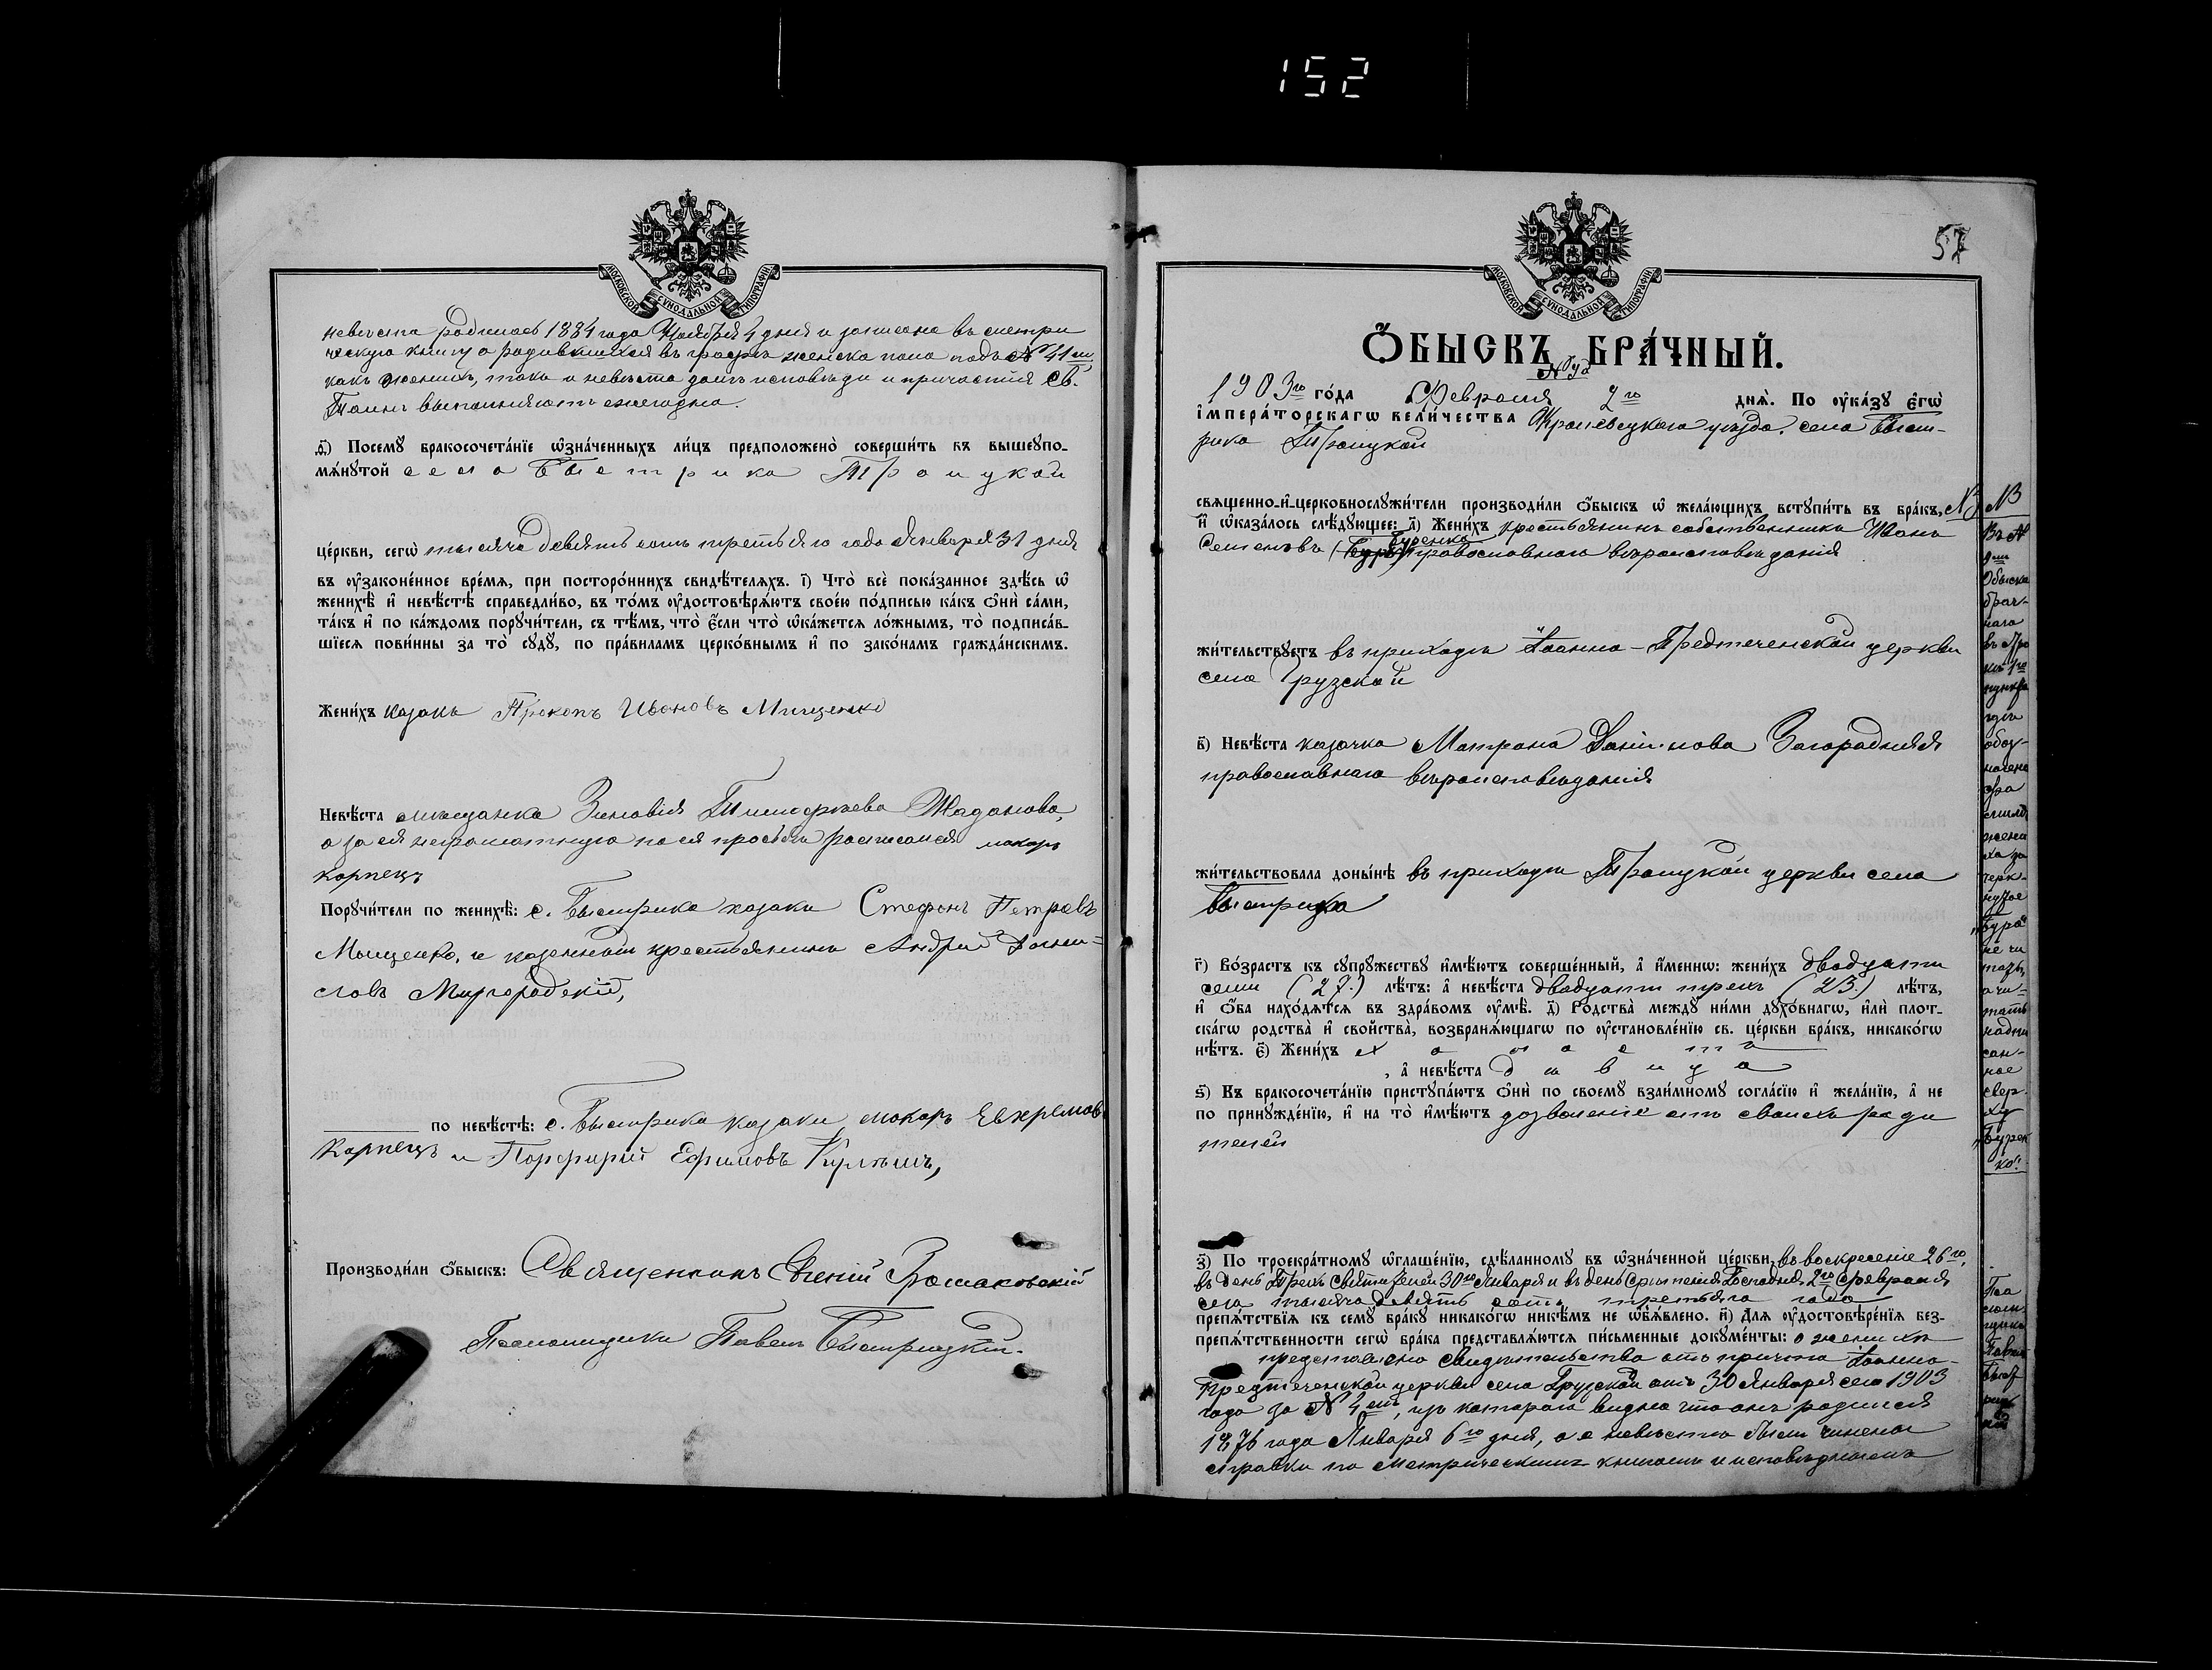 152
МОСКОВСКОЙ СУНОДАЛЬНОЙ ТИПОГРАФІИ
невѣста родилась 1884 года Ноября 4 дня и записана въ метри
ческую книгу о родившихся въ графѣ женска пола подъ № 41 мъ,
какъ женихъ, такъ и невѣста долгъ исповѣди и причастія Св.
Таинъ выполняютъ ежегодно.
ѳ҃) Посемꙋ бракосочета́нїе ѡ҆зна́ченныхъ ли́цъ предположено̀ соверши́ть въ вышеꙋпо-
мѧ́нꙋтой села Быстрика Троицкой
це́ркви, сегѡ̀ тысяча девятьсотъ третьяго года Января 31 дня
въ ᲂу҆законе́нное вре́мѧ, при посторо́ннихъ свидѣ́телѧхъ. і҃) Что̀ всѐ пока́занное здѣ́сь ѡ҆
женихѣ̀ и҆ невѣ́стѣ справедли́во, въ то́мъ ᲂу҆достовѣрѧ́ютъ свое́ю по́дписью ка́къ ѻ҆нѝ са́ми,
та́къ и҆ по ка́ждомъ порꙋчи́тели, съ тѣ́мъ, что̀ є҆́сли что̀ ѡ҆ка́жется ло́жнымъ, то̀ подписа́в-
шїеся пови́нны за то̀ сꙋдꙋ̀, по пра́виламъ церко́внымъ и҆ по зако́намъ гражда́нскимъ.
Жени́хъ казакъ Прокопъ Ивановъ Мищенко
Невѣ́ста мѣщанка Зиновія Тимофѣева Жаданова,
а за ея неграмотную по ея просьбѣ росписался макаръ
карпецъ
Порꙋчи́тели по женихѣ̀: с. Быстрика казаки Стефанъ Петровъ
Мищенко, и казенный крестьянинъ Андрей Дани-
ловъ Миргородскій,
по невѣ́стѣ: с. Быстрика казаки, макаръ Евхремов
Карпецъ и Порфирій Ефимовъ Кулешъ,
Производи́ли ѻ҆́быскъ: Священникъ Евгеній Ромаковскій
Псаломщикъ Павелъ Быстрицкій.
57
МОСКОВСКОЙ СУНОДАЛЬНОЙ ТИПОГРАФІИ
Ѻ҆́БЫСКЪ БРА́ЧНЫЙ.
№ 9й
1903го го́да Февраля 2го днѧ̀. По ᲂу҆ка́зꙋ є҆гѡ̀
і҆мпера́торскагѡ вели́чества Кролевецкаго уѣзда, села Быст-
рика Троицкой
свѧщенно-и҆-церковнослꙋжи́тели производи́ли ѻ҆́быскъ ѡ҆ жела́ющихъ встꙋпи́ть въ бра́къ, NB
и҆ ѡ҆каза́лось слѣ́дꙋющее: а҃) Жени́хъ крестьянинъ собственникъ Иванъ
Буренко
Семеновъ (Бура) православнаго вѣроисповѣданія
жи́тельствꙋетъ въ приходѣ Іоанно-Предтеченской церкви
села Грузской
в҃) Невѣ́ста казачка Матрона Данилова Загородняя
православнаго вѣроисповѣданія
жи́тельствовала доны́нѣ въ приходѣ Троицкой церкви села
Быстрика
г҃) Во́зрастъ къ сꙋпрꙋжествꙋ и҆мѣ́ютъ соверше́нный, а҆ и҆́меннѡ: жени́хъ двадцати
семи (27.) лѣ́тъ: а҆ невѣ́ста двадцати трехъ (23.) лѣ́тъ,
и҆ ѻ҆́ба нахо́дѧтсѧ въ здра́вомъ ᲂу҆мѣ̀. д҃) Ро́дства междꙋ ни́ми дꙋхо́внагѡ, и҆лѝ плот-
ска́гѡ родства̀ и҆ свойства̀, возбранѧ́ющагѡ по ᲂу҆становле́нїю св. це́ркви бра́къ, никако́гѡ
нѣ́тъ. є҃) Жени́хъ холостъ
, а҆ невѣ́ста дѣвица
ѕ҃) Къ бракосочета́нїю пристꙋпа́ютъ ѻ҆нѝ по своемꙋ̀ взаи́мномꙋ согла́сїю и҆ жела́нїю, а҆ не
по принꙋжде́нїю, и҆ на то̀ и҆мѣ́ютъ дозволеніе отъ своихъ роди
телей
з҃) По троекра́тномꙋ ѡ҆глаше́нїю, сдѣ́ланномꙋ въ ѡ҆зна́ченной це́ркви, въ воскресеніе 26го,
въ день Трехъ Святителей 30го Января и въ день Срѣтенія Господня 2го Февраля
сего тысяча девятьсотъ третьяго года
препѧ́тствїѧ къ семꙋ̀ бра́кꙋ никако́гѡ никѣ́мъ не ѡ҆б̾ѧ́влено. и҃) Длѧ ᲂу҆достовѣре́нїѧ без-
препѧ́тственности сегѡ̀ бра́ка представлѧ́ются пи́сьменные докꙋме́нты: о женихѣ
представлено свидѣтельство отъ причта Іоанно-
Предтеченской церкви села Грузской отъ 30 Января сего 1903
года за № 4мъ, изъ котораго видно что онъ родился
1876 года Января 6го дня, а о невѣстѣ были чинены
справки по метрическимъ книгамъ и исповѣднымъ
NB
Въ №
9мъ
обыска
брач-
наго
въ гра
фѣ 1го
пункта
гдѣ
обоз-
начена
фа
милія
жени
ха за
черк-
нутое
„Бура"
не чи
тать,
а чи-
тать
надпи
сан-
ное
свер-
ху
„Бурен
ко."
Пса
лом-
щикъ
Павелъ
Быст
риц
кій